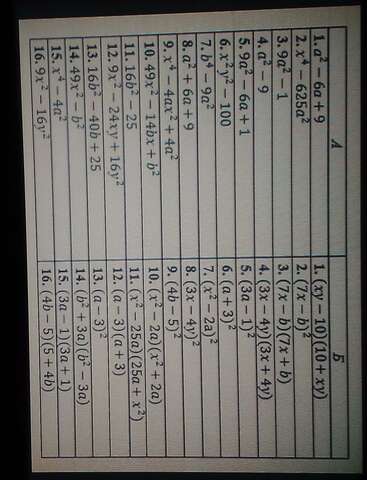 А Б
1. a² − 6a + 9 1. (xy − 10)(10 + xy)
2. x⁴ − 625a² 2. (7x − b)²
3. 9a² − 1 3. (7x − b)(7x + b)
4. a² − 9 4. (3x − 4y)(3x + 4y)
5. 9a² − 6a + 1 5. (3a − 1)²
6. x²y² − 100 6. (a + 3)²
7. b⁴ − 9a² 7. (x² − 2a)²
8. a² + 6a + 9 8. (3x − 4y)²
9. x⁴ − 4ax² + 4a² 9. (4b − 5)²
10. 49x² − 14bx + b² 10. (x² − 2a)(x² + 2a)
11. 16b² − 25 11. (x² − 25a)(25a + x²)
12. 9x² − 24xy + 16y² 12. (a − 3)(a + 3)
13. 16b² − 40b + 25 13. (a − 3)²
14. 49x² − b² 14. (b² + 3a)(b² − 3a)
15. x⁴ − 4a² 15. (3a − 1)(3a + 1)
16. 9x² − 16y² 16. (4b − 5)(5 + 4b)